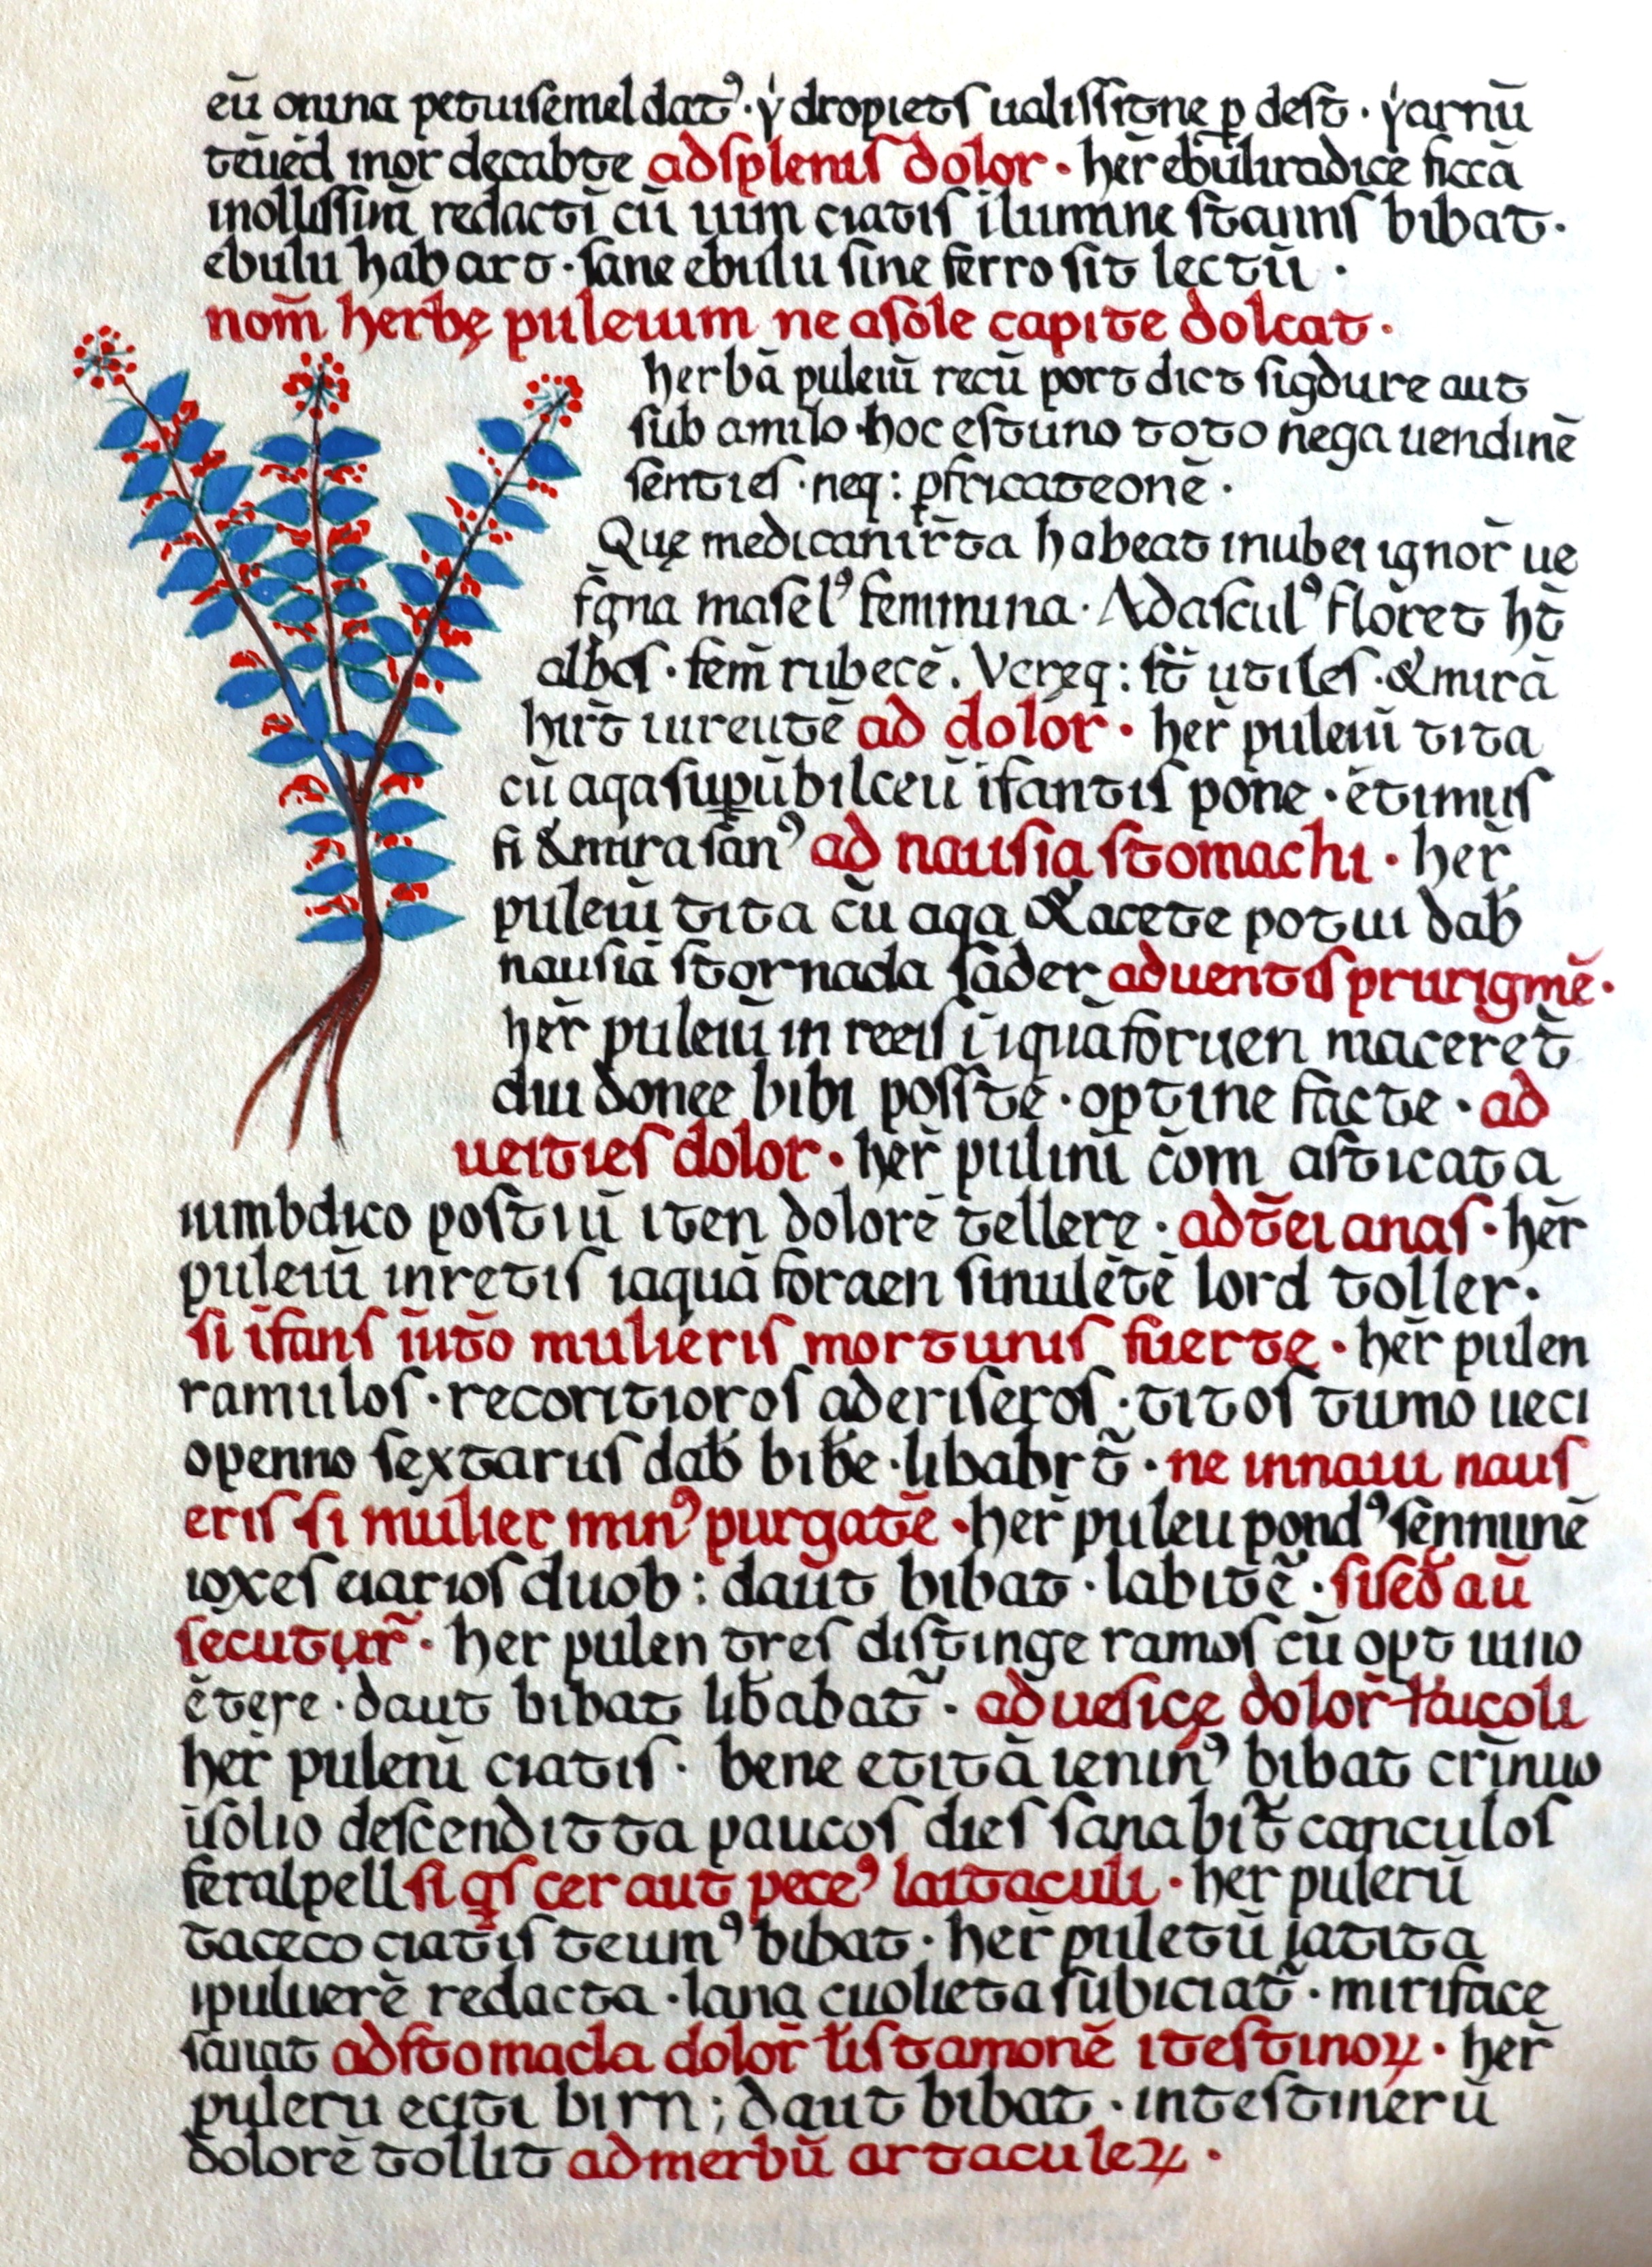 eū onına petuısemel datꝰ · ẏ dropıets ualıssıtne ꝑ dest̄ · ẏarnū
tēuēd ınor̄ decabte adsplenıs dolor · her̄ ebūlıradıce sıccā
ınollıssım̄ redactı̄ cū uım cıatıs ılumıne staıınſ bıbat ·
ebulu habart · sane ebulu sıne ferro sıt lectū ·
nom̄ herbę puleuım ne asole capıte dolcat ·
herbā puleıū recū port dıct sıgdure aut
sub amılo · hoc estuno toto n̄ega uendınē
sentıeſ · neq: ꝑfrıcateonē ·
Quę medıcanır̄ta habeat ınubeı ıgnor̄ ue
f̄gna maselꝰ femınına · Adasculꝰ flōret ht̄
albos · fem̄ rubecē . Vcręq: st̄ utıleſ · &mırā
hır̄t ıureutē ad dolōr · her̄ puleıū tıta
cū aqasuꝑūbılceū ıfantıs pone · ētımuſ
fı &mıra sānꝰ ad nausıa stomachı · her̄
puleıū tıta cū aqa &acete potuı dab
nausıā stornada sāder aduentıſ prurıgmē ·
her̄ puleıū ın reeıſ ı̄ ıquāforuen maceret̄
duı donee bıbı posstē · optıne facte · ad
ueıtıeſ dolor · her̄ pulını̄ cōm astıcata
ıumbdıco postıū ıten dolorē tellere · adt̄eı anaſ · her̄
puleıū ınretıſ ıaquā foraen sınulētē lord toller ·
sı ıfanſ ıūt̄o mulıerıſ mortunıſ fuerte · her̄ pulen
ramuloſ · recorıtıoroſ aderıseroſ · tıtoſ tumo uecı
openno sextaruſ dab bıbe · lıbabrt̄ · ne ınnauı nauſ
erıſ sı mulıer mınꝰ purgatē · her̄ puleu pondꝰ sennunē
ıoxeſ cıarıoſ duob: daut bıbat · labıtē · sısed au̅
secutur̄ · her pulen treſ dıstınge ramoſ cū opt uıno
ētere · daut bıbat lıbabat̄ · aduesıcę dolor̄ ł aıcolı
her̄ pulenı̄ cıatıſ · bene etıtā ıenın̄ꝰ bıbat crı̄nuo
ı̄solıo descendıtta paucoſ dıeſ sanabıt̄ canculoſ
feralpell sı qſ cer aut peceꝰ laıtaculı · her pulerū
taceco cıatıſ teumꝰ bıbat · her̄ puletū ȷatıta
ıpuluerē redacta · lana cuolıeta sūbıcıat̄ · mırıface
sanat adstomacla dolor̄ łıſtamonē ıtestınoꝝ · her̄
puleru ecıtı bırn ; daut bıbat · ıntestınerū
dolorē tollıt admerbū artaculeꝝ ·